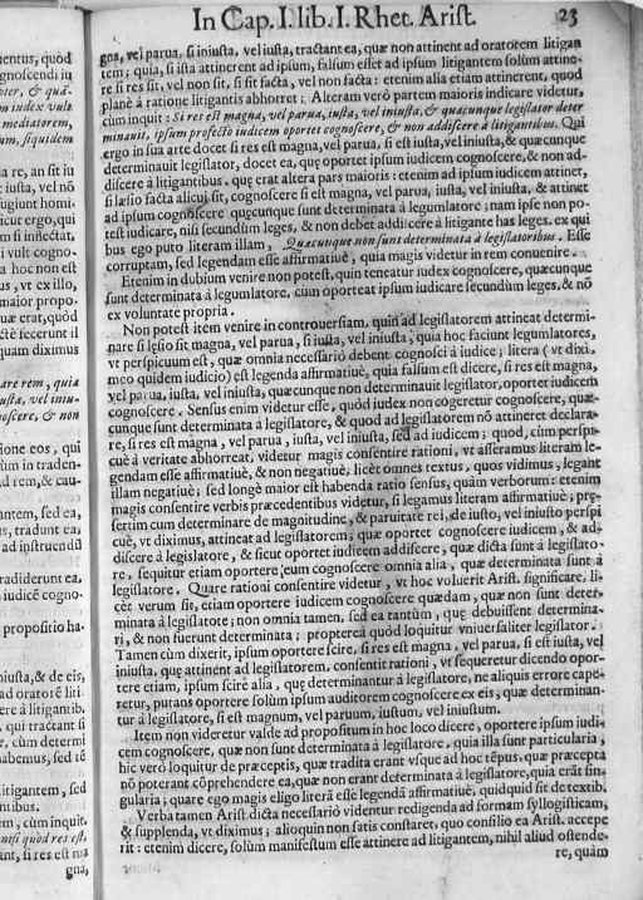 In Cap. I. lib. I. Rhet. Arist. 23
uentus, quòd
gnoscendi iu
m iudex vult
mediatorem,
um, siquidem
a re, an sit iu
iusta, vel nō
fugiunt homi-
icut ergo, qui
m si inflectat,
i vult cogno-
a hoc non est
us, vt ex illo,
maior propo-
uæ erat, quòd
ctè fecerunt il
quam diximus
are rem, quia
iusta, vel iniu-
noscere, & non
ione eos, qui
ùm in traden-
ad rem, & cau-
antem, sed ea,
us, tradunt ea,
ad instruendū
radiderunt ea,
iudicē cogno-
propositio ha-
niusta, & de eis,
ad oratorē liti
ere à litigantib.
qui tractant si
e, cùm determi
habemus, sed tē
itigantem, sed
ntibus.
em, cùm inquit.
nisi quòd res est,
ant, si res est ma
gna,
gna, vel parua, si iniusta, vel iusta, tractant ea, quæ non attinent ad oratorem litigan
tem; quia, si ista attinerent ad ipsum, falsum esset ad ipsum litigantem solùm attine-
re si res sit, vel non sit, si sit facta, vel non facta: etenim alia etiam attinerent, quod
planè à ratione litigantis abhorret; Alteram verò partem maioris indicare videtur,
cùm inquit: Si res est magna, vel parua, iusta, vel iniusta, & quæcunque legislator deter
minauit, ipsum profecto iudicem oportet cognoscere, & non addiscere à litigantibus. Qui
ergo in sua arte docet si res est magna, vel parua, si est iusta, vel iniusta, & quæcunque
determinauit legislator, docet ea, quę oportet ipsum iudicem cognoscere, & non ad-
discere à litigantibus. quę erat altera pars maioris: etenim ad ipsum iudicem attinet,
si læsio facta alicui sit, cognoscere si est magna, vel parua, iusta, vel iniusta, & attinet
ad ipsum cognoscere quęcunque sunt determinata à legumlatore; nam ipse non po-
test iudicare, nisi secundùm leges, & non debet addiscere à litigante has leges. ex qui
bus ego puto literam illam, Quæcunque non sunt determinata à legislatoribus. Esse
corruptam, sed legendam esse affirmatiuè, quia magis videtur in rem conuenire.
Etenim in dubium venire non potest, quin teneatur iudex cognoscere, quæcunque
sunt determinata à legumlatore, cùm oporteat ipsum iudicare secundùm leges, & nō
ex voluntate propria.
Non potest item venire in controuersiam, quin ad legislatorem attineat determi-
nare si lęsio sit magna, vel parua, si iusta, vel iniusta, quia hoc faciunt legumlatores,
vt perspicuum est, quæ omnia necessariò debent cognosci à iudice; litera (vt dixi,
meo quidem iudicio) est legenda affirmatiuè, quia falsum est dicere, si res est magna,
vel parua, iusta, vel iniusta, quæcunque non determinauit legislator, oportet iudicem
cognoscere. Sensus enim videtur esse, quòd iudex non cogeretur cognoscere, quæ-
cunque sunt determinata à legislatore, & quod ad legislatorem nō attineret declara-
re, si res est magna, vel parua, iusta, vel iniusta, sed ad iudicem; quod, cùm perspi-
cuè à veritate abhorreat, videtur magis consentire rationi, vt asseramus literam le-
gendam esse affirmatiuè, & non negatiuè, licèt omnes textus, quos vidimus, legant
illam negatiuè; sed longè maior est habenda ratio sensus, quàm verborum: etenim
magis consentire verbis præcedentibus videtur, si legamus literam affirmatiuè; prę-
sertim cum determinare de magnitudine, & paruitate rei, de iusto, vel iniusto perspi
cuè, vt diximus, attineat ad legislatorem; quæ oportet cognoscere iudicem, & ad-
discere à legislatore, & sicut oportet iudicem addiscere, quæ dicta sunt à legislato-
re, sequitur etiam oportere, eum cognoscere omnia alia, quæ determinata sunt à
legislatore. Quare rationi consentire videtur, vt hoc voluerit Arist. significare, li-
cèt verum sit, etiam oportere iudicem cognoscere quædam, quæ non sunt deter-
minata à legislatore; non omnia tamen, sed ea tantùm, quę debuissent determina-
ri, & non fuerunt determinata: propterea quòd loquitur vniuersaliter legislator.
Tamen cùm dixerit, ipsum oportere scire, si res est magna, vel parua, si est iusta, vel
iniusta, quę attinent ad legislatorem, consentit rationi, vt sequeretur dicendo opor-
tere etiam, ipsum scire alia, quę determinantur à legislatore, ne aliquis errore cape-
retur, putans oportere solùm ipsum auditorem cognoscere ex eis, quæ determinan-
tur à legislatore, si est magnum, vel paruum, iustum, vel iniustum.
Item non videretur valde ad propositum in hoc loco dicere, oportere ipsum iudi-
cem cognoscere, quæ non sunt determinata à legislatore, quia illa sunt particularia,
hic verò loquitur de præceptis, quæ tradita erant vsque ad hoc tēpus. quæ præcepta
nō poterant cōprehendere ea, quæ non erant determinata à legislatore, quia erāt sin-
gularia; quare ego magis eligo literā esse legendā affirmatiuè, quidquid sit de textib.
Verba tamen Arist. dicta necessariò videntur redigenda ad formam syllogisticam,
& supplenda, vt diximus; alioquin non satis constaret, quo consilio ea Arist. accepe
rit: etenim dicere, solùm manifestum esse attinere ad litigantem, nihil aliud ostende-
re, quàm